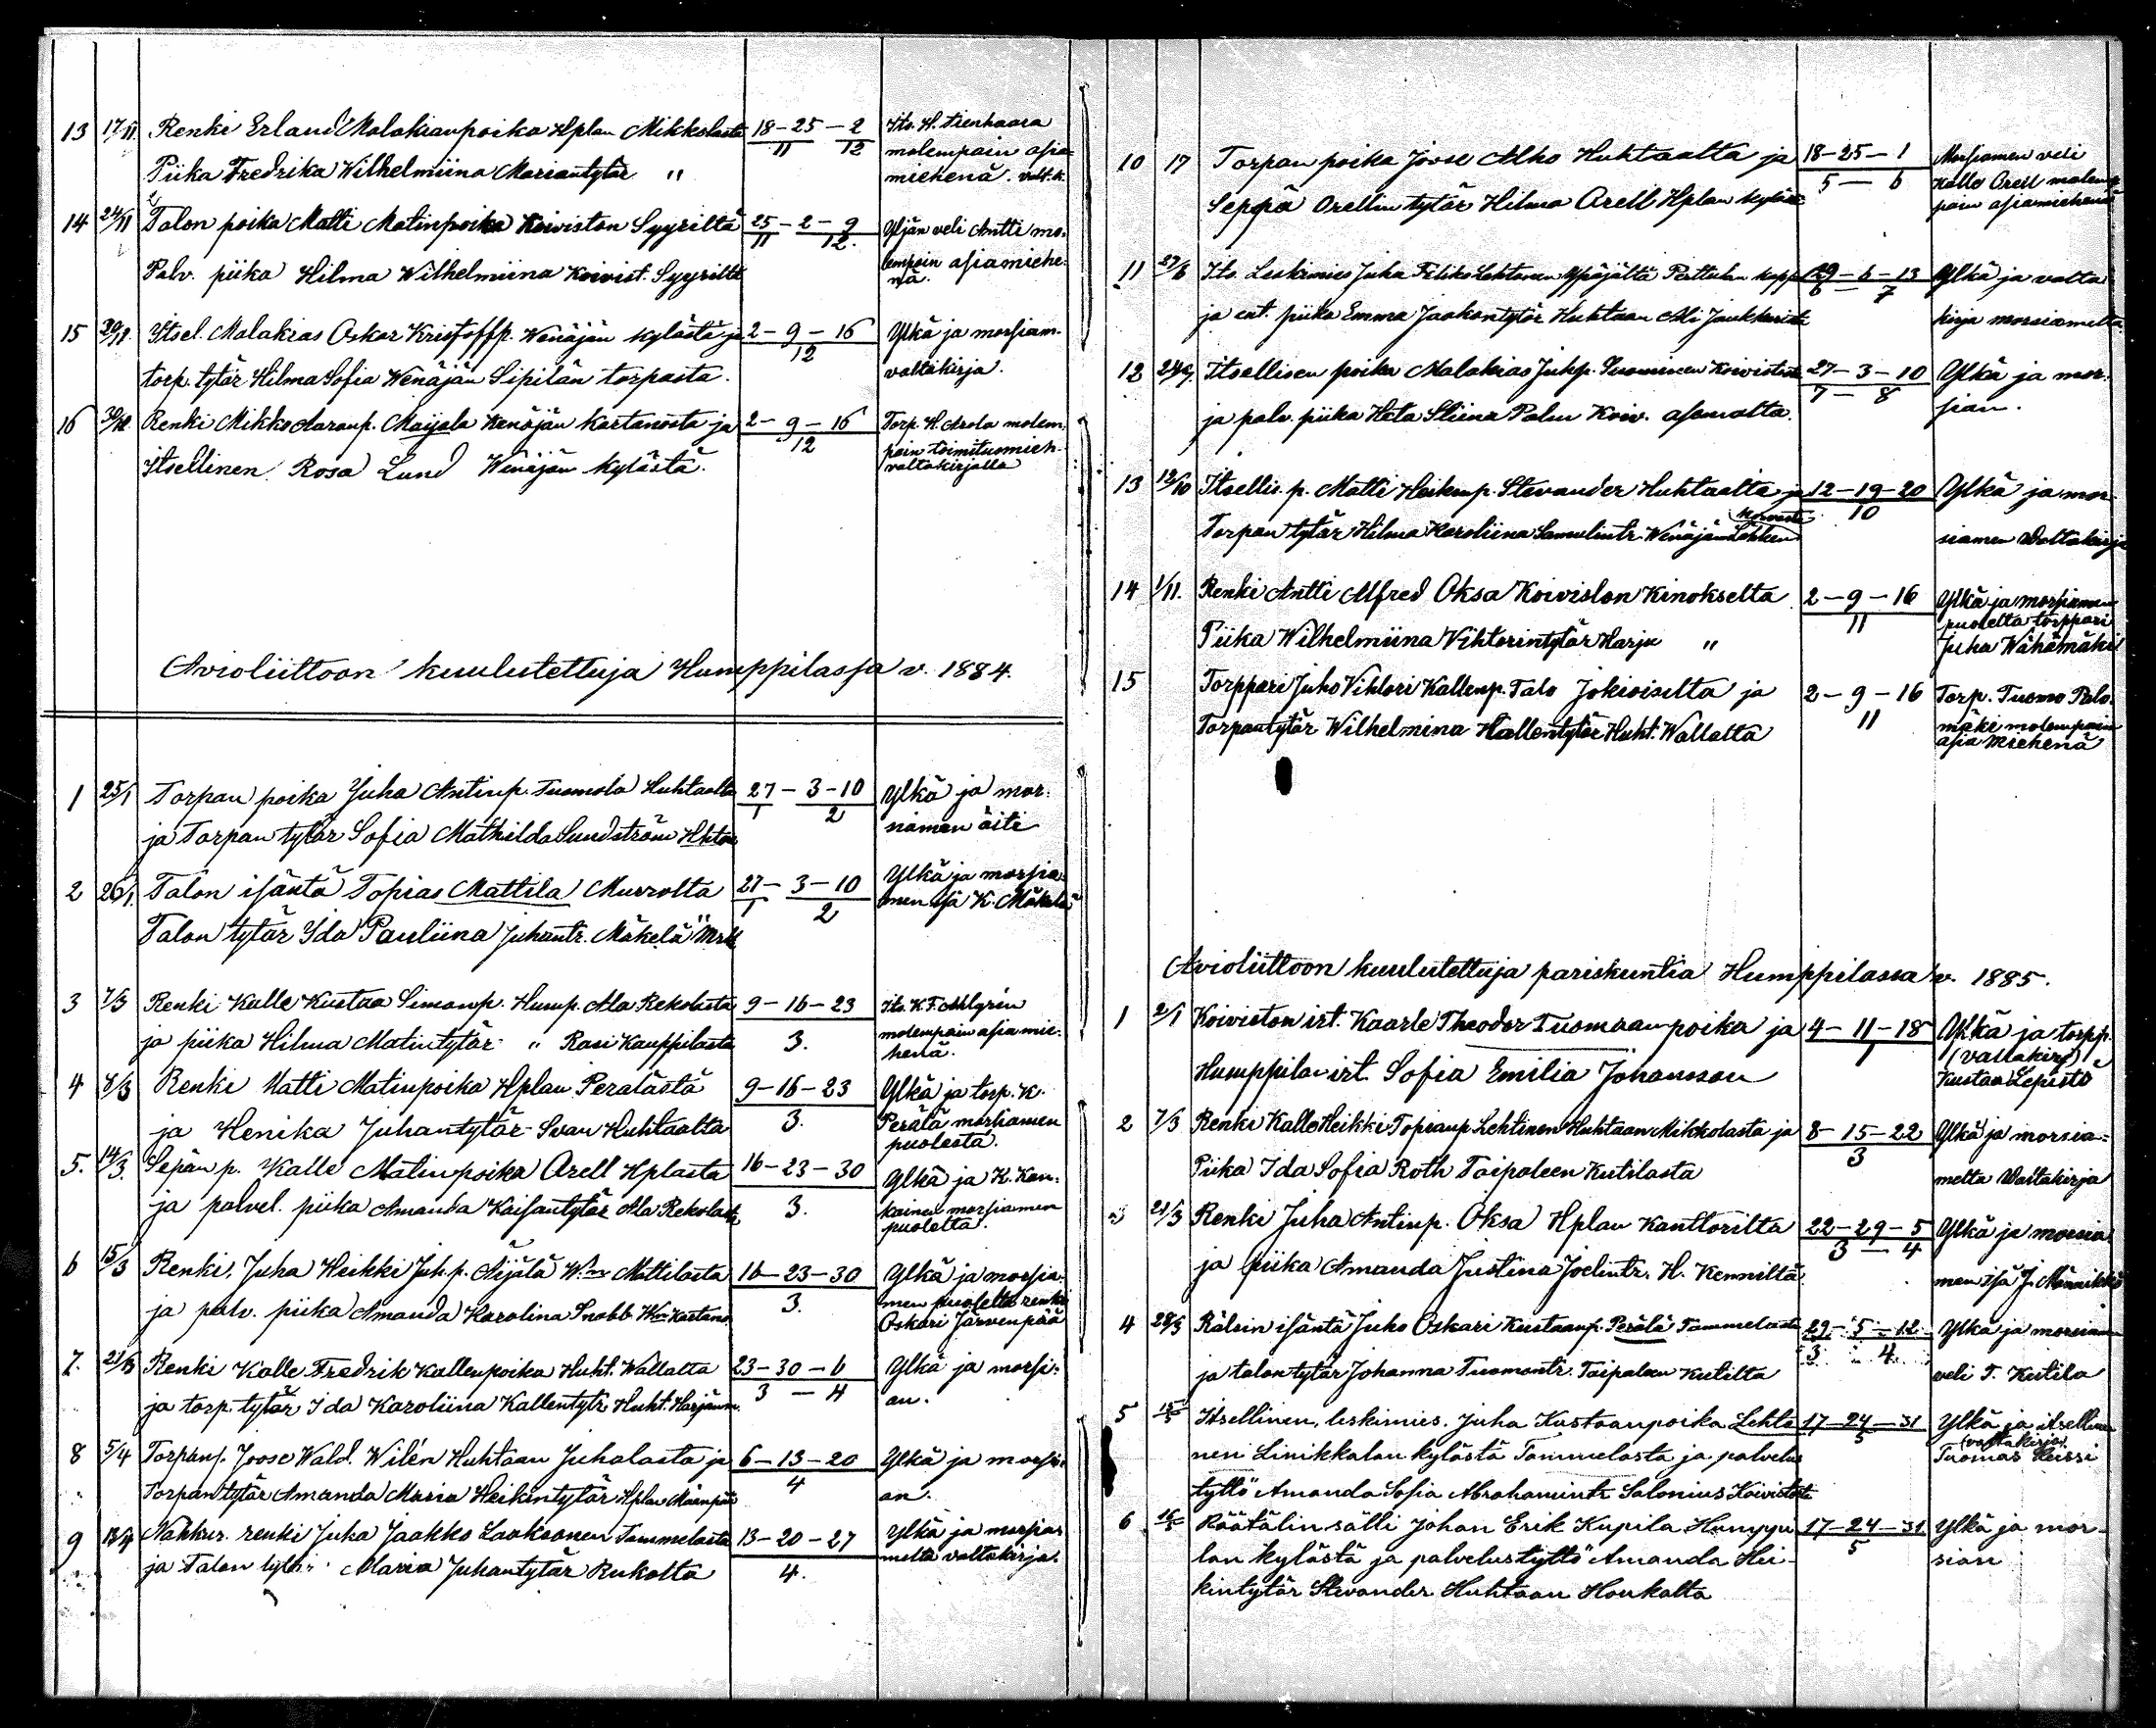 13 17/11 Renki Erland Malakianpoika Hplan Mikkolasta 18-25-2 Its. H. Tienhaara
11 12 molempain asia-
Piika Fredrika Wilhelmiina Mariantytär " miehenä. valt.k.
14 24/11 Talon poika Matti Matinpoika Koiviston Syyriltä 25-2-9 Yljän veli Antti mo-
11 12. lempain asiamiehe-
Palv. piika Hilma Wilhelmiina Koivist. Syyriltä nä.
15 29/11. Itsel. Malakias Oskar Kristoffp. Wenäjän kylästä ja 2-9-16 Ylkä ja morsiam.
12
torp. tytär Hilma Sofia Wenäjän Sipilän torpasta. valtakirja.
16 30/11 Renki Mikko Aaronp. Maijala Wenäjän Kartanosta ja 2-9-16 Torp. H. Arola molem.
12 pain toimitusmieh.
Itsellinen Rosa Lund Wenäjän kylästä. valtakirjalla
Avioliittoon kuulutettuja Humppilassa v. 1884.
1 25/1 Torpan poika Juha Antinp. Tuomola Huhtaalta 27-3-10 Ylkä ja mor-
1 2
ja Torpan tytär Sofia Mathilda Sundström Hhtaa siamen äiti
2 26/1. Talon isäntä Topias Mattila Murrolta 27-3-10 Ylkä ja morsia-
1 2 men isä K. Mäkelä
Talon tytär Ida Pauliina Juhantr. Mäkelä Mrlt
3 7/3 Renki Kalle Kustaa Simonp. Hump. Ala Rekolasta 9-16-23 Its. K. F. Ahlgrén
molempain asia mie-
ja piika Hilma Matintytär " Rasi Kauppilasta 3. henä.
4 8/3 Renki Matti Matinpoika Hplan Perälästä 9-16-23 Ylkä ja torp. K.
Perälä morsiamen
ja Henika Juhantytär Svan Huhtaalta 3. puolesta.
5. 14/3. Sepän p. Kalle Matinpoika Arell Hplasta 16-23-30 Ylkä ja K. Kan-
kainen morsiamen
ja palvel. piika Amanda Kaisantytär Ala Rekolasta 3. puoletta.
6 15/3 Renki. Juha Heikki Juh. p. Äijälä Wän Mattilasta 16-23-30 Ylkä ja morsia-
men puoletta renki
ja palv. piika Amanda Karolina Snobb Wän Kartano 3. Oskari Järvenpää
7. 21/3 Renki Kalle Fredrik Kallenpoika Huht. Wallalta 23-30-6 Ylkä ja morsi-
3 - 4
ja torp. tytär Ida Karoliina Kallentytr Huht. Harjunm. an.
8 5/4 Torpanp. Joose Wald. Wilén Huhtaan Juhalasta ja 6-13-20 Ylkä ja morsi-
4
Torpan tytär Amanda Maria Heikintytär Hplan Mäenpää an.
9 13/4 Nahkur. renki Juha Jaakko Laaksonen Tammelasta 13-20-27 Ylkä ja morsia-
melta valtakirja.
ja Talon tytär Maria Juhantytär Rukolta 4.
10 17 Torpan poika Joose Alho Huhtaalta ja 18-25-1 Morsiamen veli
5 - 6 Kalle Orell molem-
Seppä Orellin tytär Hilma Orell Hplan kyläst pain asiamiehenä
11 27/6 Its. Leskimies Juha Feliks Lehtonen Ypäjältä Perttulan kapp 29-6-13 Ylkä ja valta
6 - 7
ja ent. piika Emma Jaakontytär Huhtaan Ali Jaukkarista kirja morsiamelta
12 24/7. Itsellisen poika Malakias Juhp. Suominen Koivistolta 27-3-10 Ylkä ja mor-
7 - 8
ja palv. piika Heta Stiina Palm Koiv. asemalta. sian.
13 12/10 Itsellis. p. Matti Heikinp. Stevander Huhtaalta ja 12-19-20 Ylkä ja mor-
10
Torpan tytär Hilma Karoliina Samulintr. Wenäjän siamen valtakirja
14 1/11. Renki Antti Alfred Oksa Koiviston Kinokselta 2-9-16 Ylkä ja morsiamen
11 puolelta torppari
Piika Wilhelmiina Vihtorintytär Harju " Juha Wähämäki
15 Torppari Juho Vihtori Kallenp. Talo Jokioiselta ja 2-9-16 Torp. Tuomo Palo-
11 mäki molempain
Torpantytär Wilhelmina Kallentytär Huht. Wallalta asia miehenä
Avioliittoon kuulutettuja pariskuntia Humppilassa v. 1885.
1 2/1 Koiviston irt. Kaarle Theodor Tuomaanpoika ja 4-11-18 Ylkä ja torpp.
1 (valtakirj)
Humppilan irt. Sofia Emilia Johansson Kustaa Lepistö
2 7/3 Renki Kalle Heikki Topianp. Lehtinen Huhtaan Mikkolasta ja 8-15-22 Ylkä ja morsia-
3
Piika Ida Sofia Roth Taipaleen Kutilasta melta Valtakirja
3 21/3 Renki Juha Antinp. Oksa Hplan Kanttorilta 22-29-5 Ylkä ja morsia
3 - 4
ja piika Amanda Justina Joelintr. H. Kenniltä men isä J. Männikkö
4 28/3 Rälsin isäntä Juho Oskari Kustaanp. Perälä Tammelasta 29-5-12 Ylkä ja morsiamen
3 4
ja talon tytär Johanna Tuomontr. Taipaleen Kutilta veli T. Kutila
5 15/5 Itsellinen, leskimies. Juha Kustaanpoika Lehto 17-24-31 Ylkä ja itsellinen
5 (valtakirja)
nen Linikkalan kylästä Tammelasta ja palvelus Tuomas Leissi
tyttö Amanda Sofia Abrahamintr Salonius Koivistolta
6 16/5 Räätälin sälli Johan Erik Kupila Humppi 17-24-31 Ylkä ja mor-
5
lan kylästä ja palvelustyttö Amanda Hei- sian
kintytär Stevander Huhtaan Houkalta